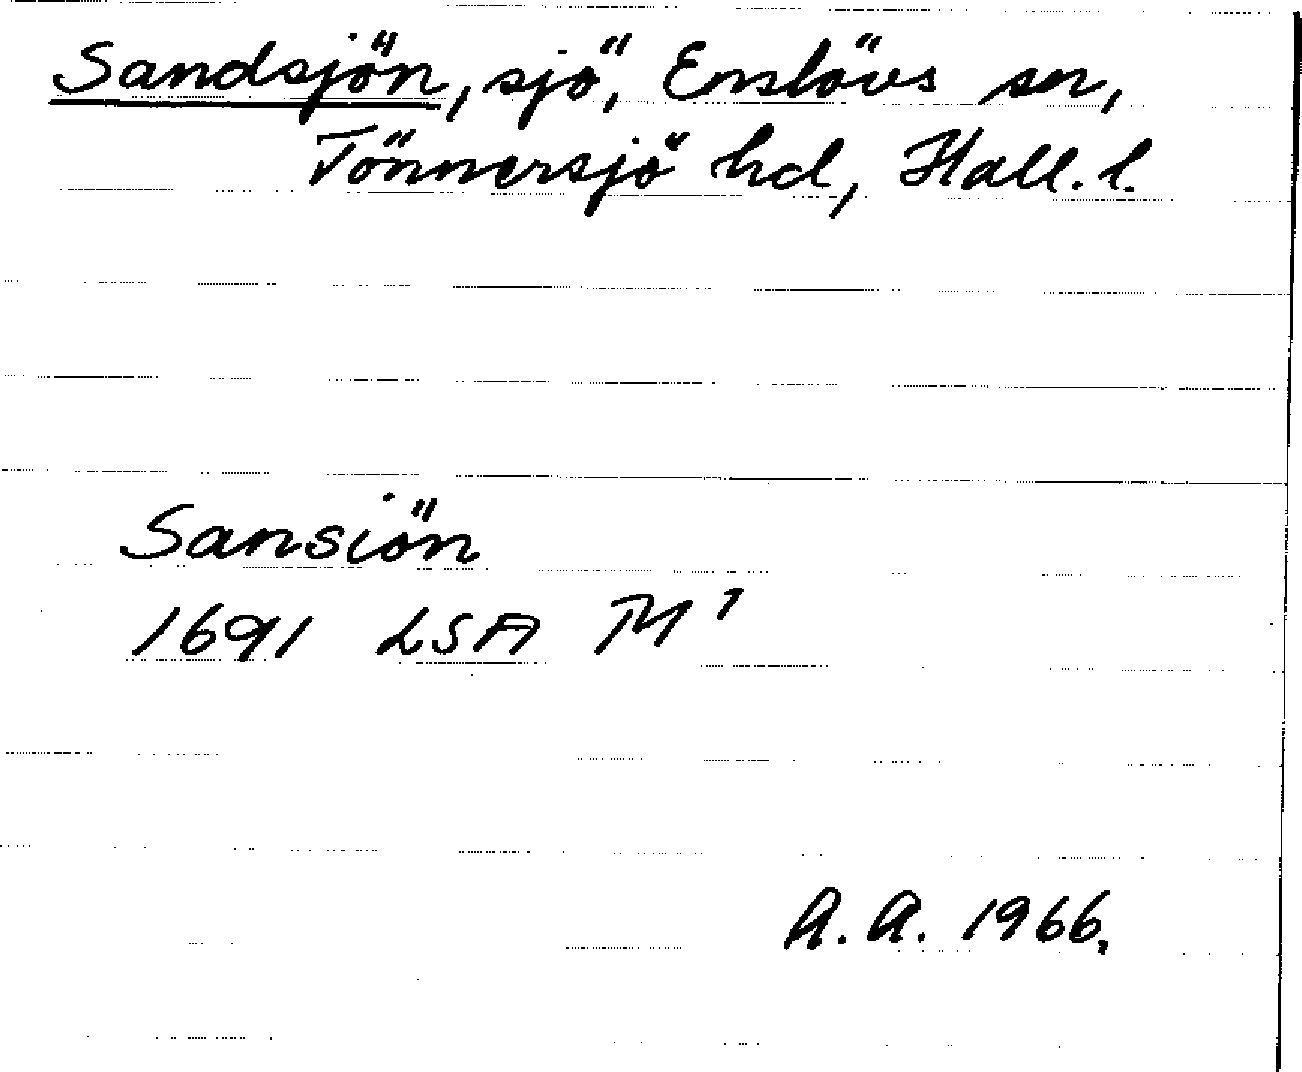 Sandsjön, sjö, Enslövs sn,
Tönnersjö hd, Hall. l.
Sansiön
1691 LSA M 1
A.A. 1966.